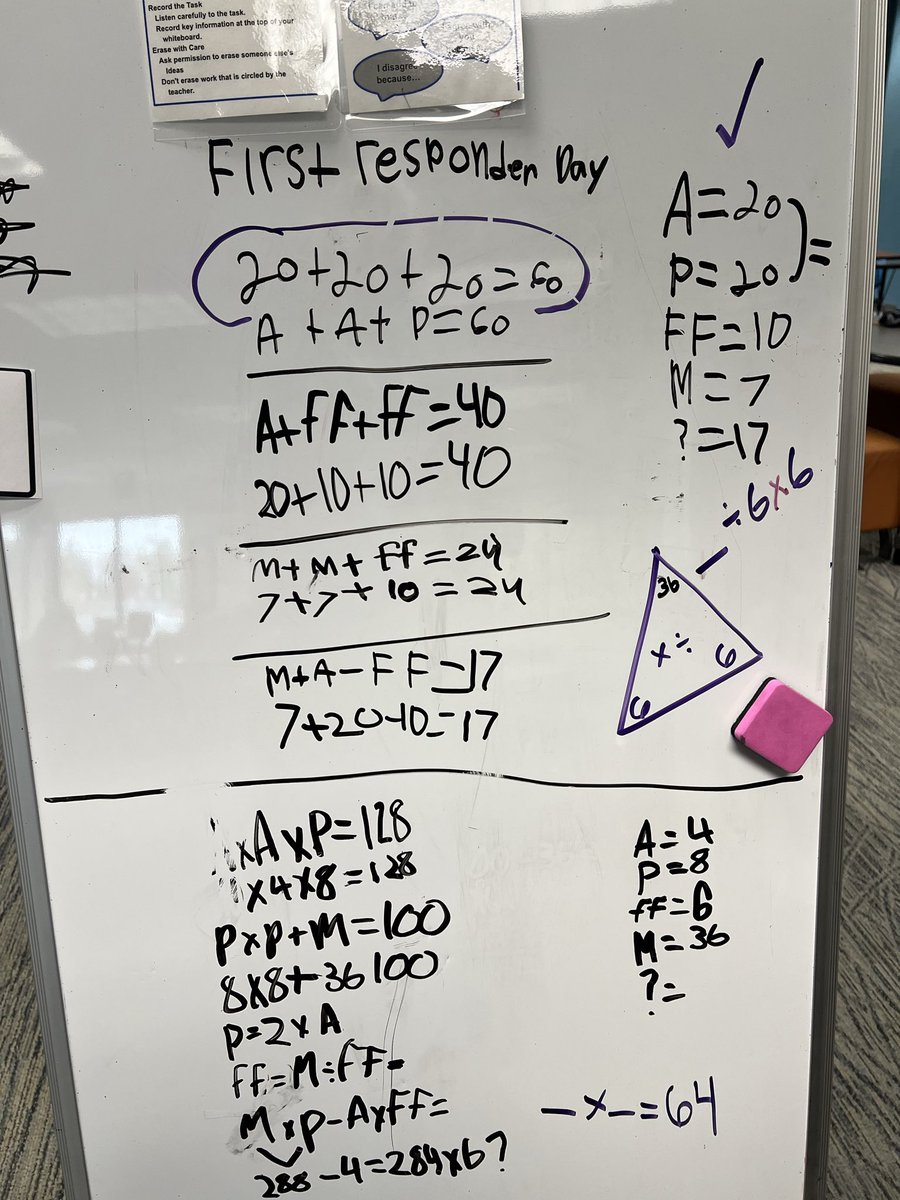 Record the Task
Listen carefully to the task.
Record key information at the top of your
whiteboard.
Erase with Care
Ask permission to erase someone else's
Ideas
Don't erase work that is circled by the
teacher.
I disagree
because...
First responder Day
20+20+20=60
A+A+P=60
A+FF+FF=40
20+10+10=40
M+M+FF=24
7+7+10=24
M+A-FF=17
7+20-10=17
A=20
P=20
=
FF=10
M=7
?=17
÷6x6
36
x÷
6
6
xAxP=128
x4x8=128
PxP+M=100
8x8+36 100
P=2xA
FF=M÷FF=
MxP-AxFF=
288-4=284x6?
A=4
P=8
FF=6
M=36
?=
_x_=64